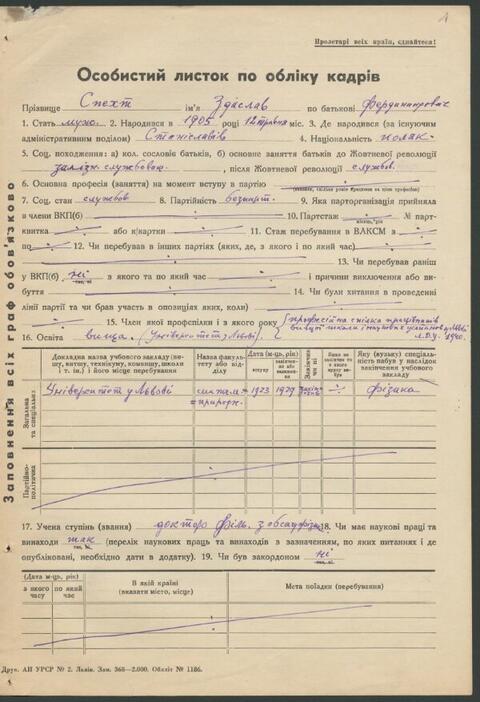 1
Пролетарі всіх країн, єднайтеся!
Особистий листок по обліку кадрів
Прізвище Спехт ім'я Здіслав по батькові Фердинандович
1. Стать муж. 2. Народився в 1905 році 12 травня міс. 3. Де народився (за існуючим
адміністративним поділом) Станіславів 4. Національність поляк.
5. Соц. походження: а) кол. сословіє батьків, б) основне заняття батьків до Жовтневої революції
залізн. службовец , після Жовтневої революції службов.
6. Основна професія (заняття) на момент вступу в партію
7. Соц. стан службов 8. Партійність безпарт. 9. Яка парторганізація прийняла
в члени ВКП(б) 10. Партстаж № парт-
місяць, рік
квитка або к/картки 11. Стаж перебування в ВЛКСМ з
по 12. Чи перебував в інших партіях (яких, де, з якого і по який час)
13. Чи перебував раніш
у ВКП(б) ні з якого та по який час і причини виключення або ви-
так, ні
буття 14. Чи були хитання в проведенні
лінії партії та чи брав участь в опозиціях, яких, коли
15. Член якої профспілки і з якого року професійна спілка працівників
вищої школи і наукових установ у Львові
16. Освіта вища (Університет у Львові) 1940.
Заповнення всіх граф обов'язково
Докладна назва учбового закладу (ви-
шу, втишу, технікуму, комвишу, школи
і т. ін.) і його місце перебування
Назва факуль-
тету або від-
ділу
Дата (м-ць, рік)
вступу
Яку (вузьку) спеціаль-
ність набув в наслідок
закінчення учбового
закладу
Загальна
та спеціальна
Університет у Львові матем.-природн. 1923 1929 фізика
Партійно-
політична
17. Учена ступінь (звання) доктор філ. з обсягу фізики 18. Чи має наукові праці та
винаходи так (перелік наукових праць та винаходів з зазначенням, по яких питаннях і де
так, ні
опубліковані, необхідно дати в додатку). 19. Чи був закордоном ні
так, ні
(Дата м-ць, рік)
з якого
часу
по який
час
В якій країні
(вказати місто, місце)
Мета поїздки (перебування)
Друк. АН УРСР № 2. Львів. Зам. 368—2.000. Обліт № 1186.